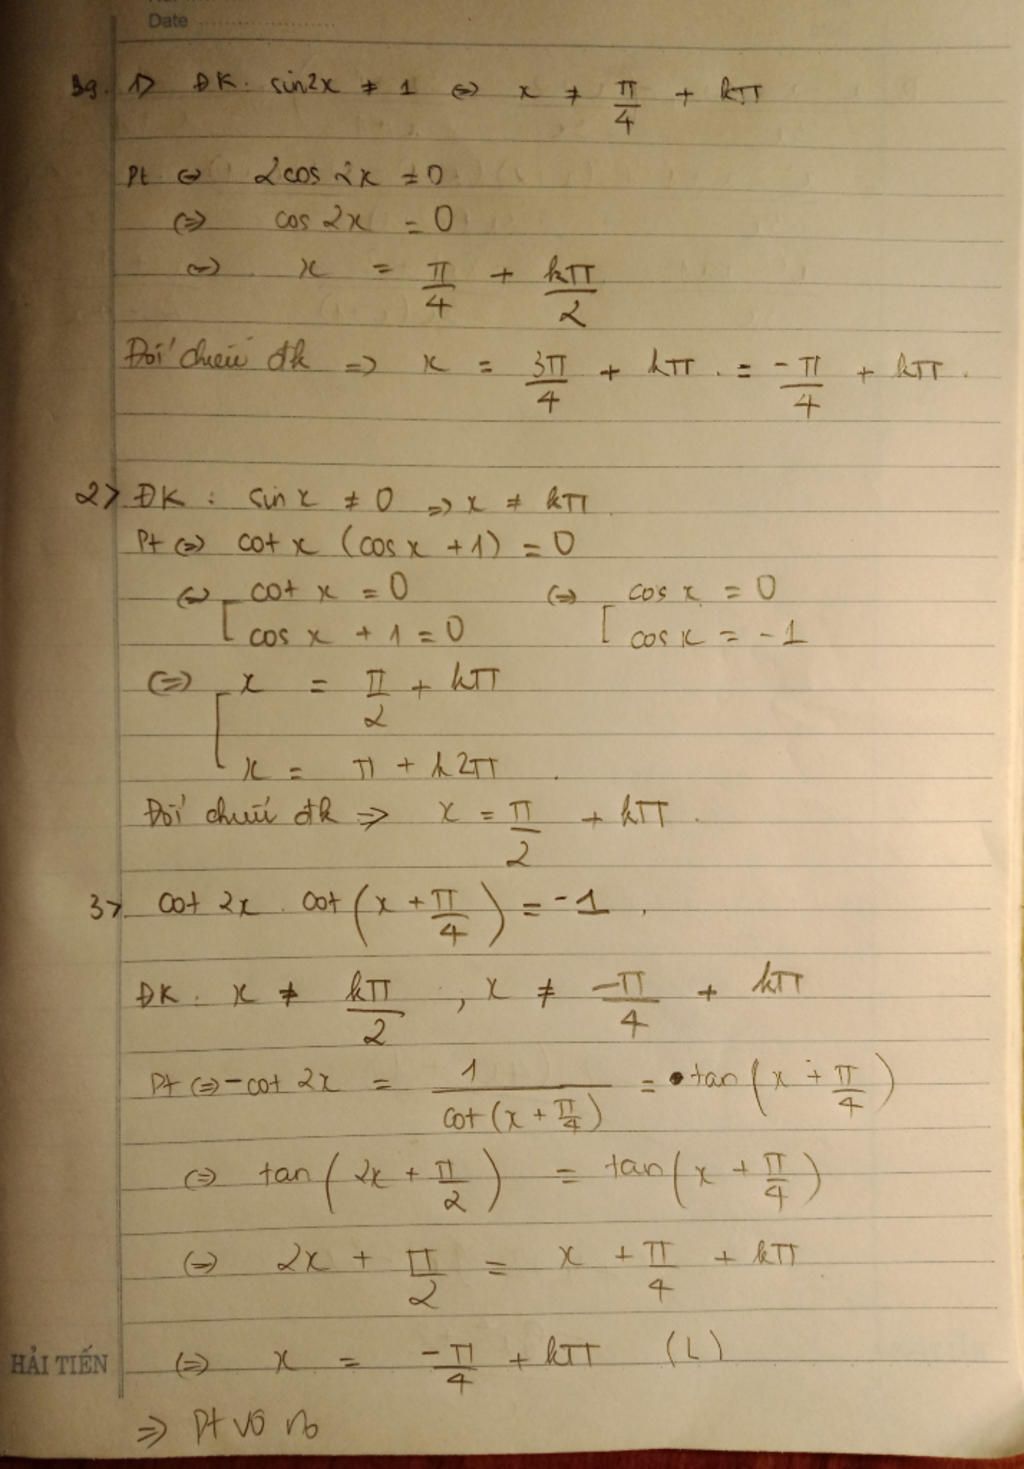 Date
39. 1> ĐK: sin2x ≠ 1 ⇔ x ≠ π/4 + kπ
Pt ⇔ 2cos 2x = 0
⇔ cos 2x = 0
⇔ x = π/4 + kπ/2
Đối chiếu đk => x = 3π/4 + kπ. = -π/4 + kπ.
2> ĐK: sin x ≠ 0 => x ≠ kπ.
Pt ⇔ cot x (cos x + 1) = 0
⇔ [ cot x = 0 ⇔ [ cos x = 0
cos x + 1 = 0 cos x = -1
⇔ [ x = π/2 + kπ
x = π + k2π.
Đối chiếu đk => x = π/2 + kπ.
3> cot 2x . cot(x + π/4) = -1.
ĐK: x ≠ kπ/2, x ≠ -π/4 + kπ
Pt ⇔ -cot 2x = 1/cot(x + π/4) = tan(x + π/4)
⇔ tan(2x + π/2) = tan(x + π/4)
⇔ 2x + π/2 = x + π/4 + kπ
HẢI TIẾN ⇔ x = -π/4 + kπ (L)
=> Pt vô no